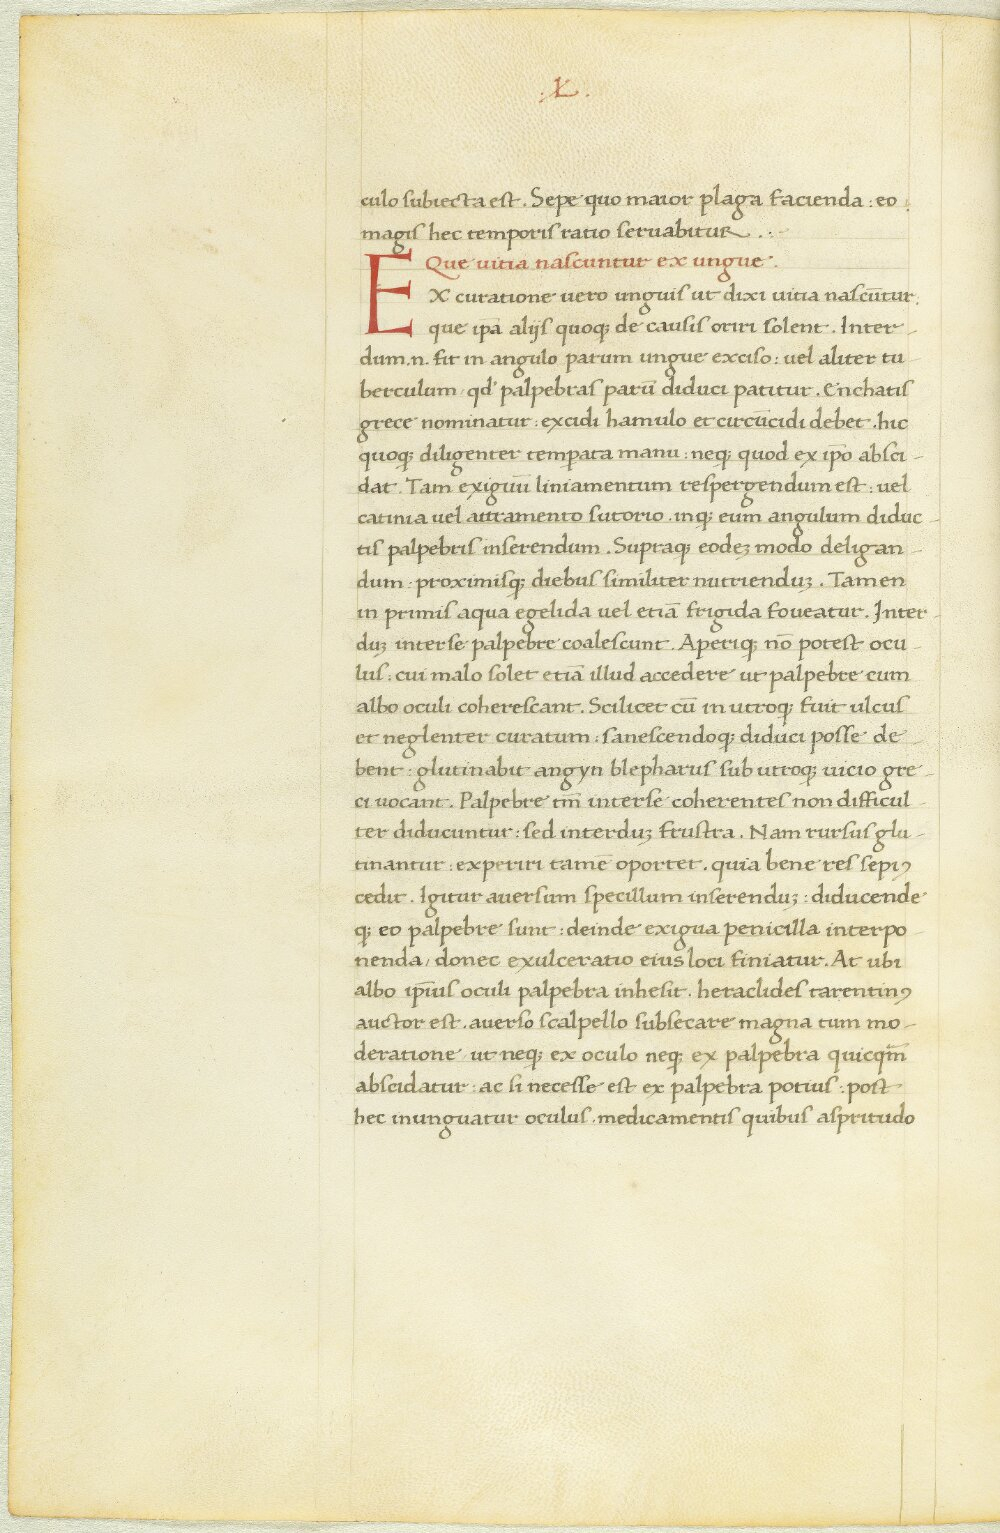 .L.
culo subiecta est. Sepe quo maior plaga facienda: eo
magis hec temporis ratio seruabitur.
Que uitia nascuntur ex ungue.
EX curatione uero unguis ut dixi uitia nascūtur.
que ip̄a alijs quoqꝫ de causis oriri solent. Inter-
dum.n. fit in angulo parum ungue exciso: uel aliter tu
berculum, qđ palpebras parū diduci patitur. Enchatis
grece nominatur: excidi hamulo et circūcidi debet. hic
quoqꝫ diligenter temperata manu: neqꝫ quod ex ip̄o absci-
dat. Tam exiguū liniamentum respergendum est: uel
catinia uel attramento sutorio. inqꝫ eum angulum diduc-
tis palpebris inserendum. Supraqꝫ eodeꝫ modo deligan-
dum: proximisqꝫ diebus similiter nutrienduꝫ. Tamen
in primis aqua egelida uel etiā frigida foueatur. Inter-
duꝫ interse palpebre coalescunt. Aperiqꝫ nō potest ocu-
lus: cui malo solet etiā illud accedere ut palpebre cum
albo oculi coherescant. Scilicet cū in utroqꝫ fuit ulcus
et neglenter curatum: sanescendoqꝫ diduci posse de-
bent: glutinabit angyn blepharus sub utroqꝫ uicio gre-
ci uocant. Palpebre tm̄ interse coherentes non difficul-
ter diducuntur: sed interduꝫ frustra. Nam rursus glu-
tinantur: experiri tamē oportet. quia bene res sepiꝰ
cedit. Igitur auersum specillum inserenduꝫ: diducende
qꝫ eo palpebre sunt: deinde exigua penicilla interpo-
nenda, donec exulceratio eius loci finiatur. At ubi
albo ip̄ius oculi palpebra inhesit. heraclides tarentinꝰ
auctor est. auerso scalpello subsecare magna tum mo-
deratione, ut neqꝫ ex oculo neqꝫ ex palpebra quicqm̄
abscidatur: ac si necesse est ex palpebra potius: post
hec inunguatur oculus. medicamentis quibus aspritudo